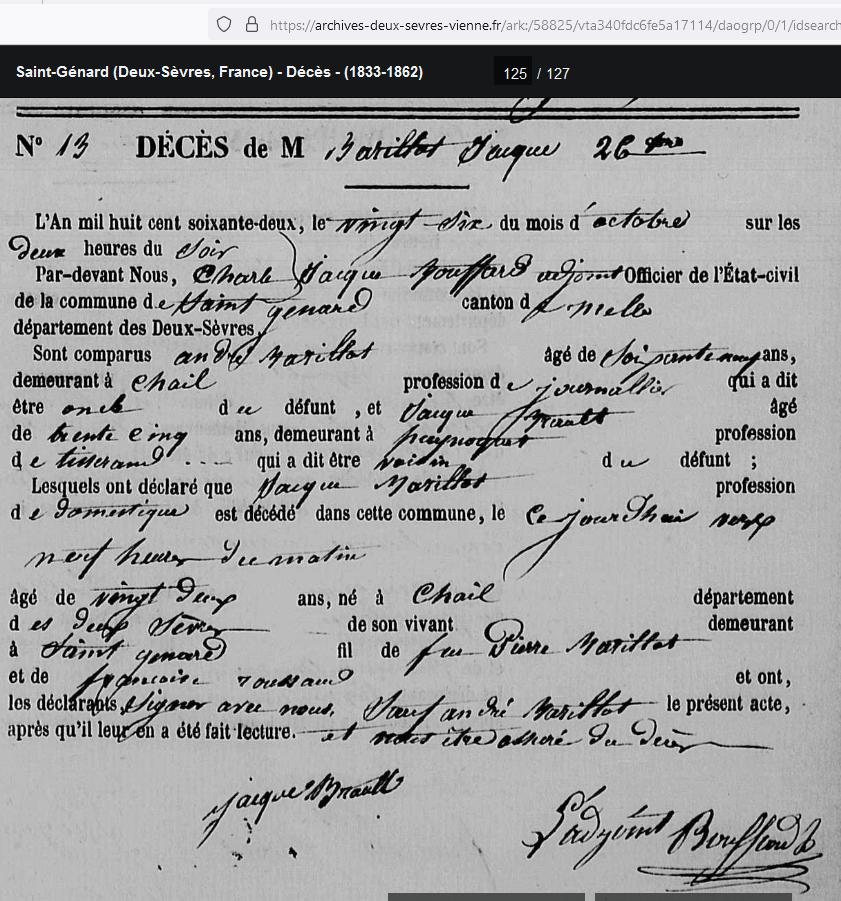 https://archives-deux-sevres-vienne.fr/ark:/58825/vta340fdc6fe5a17114/daogrp/0/1/idsearch
Saint-Génard (Deux-Sèvres, France) - Décès - (1833-1862) 125 / 127
N° 13 DÉCÈS de M Barillot Jacque 26 8bre
L'An mil huit cent soixante-deux, le vingt six du mois d'octobre sur les
deux heures du soir
Par-devant Nous, Charle Jacque Bouffard adjoint Officier de l'État-civil
de la commune de Saint genard canton de melle
département des Deux-Sèvres,
Sont comparus andré Barillot âgé de soixante neuf ans,
demeurant à Chail profession de journallier qui a dit
être oncle du défunt, et Jacque Brault âgé
de trente cinq ans, demeurant à
profession
de tisserand qui a dit être voisin du défunt ;
Lesquels ont déclaré que Jacque Barillot profession
de domestique est décédé dans cette commune, le Ce jourdhui vers
neuf heures du matin
âgé de vingt deux ans, né à Chail département
des deux Sèvres de son vivant demeurant
à Saint genard fil de feu Pierre Barillot
et de françoise roussaud et ont,
les déclarants, signer avec nous, Sauf andré Barillot le présent acte,
après qu'il leur en a été fait lecture. et nous être assuré du décès
jacque Brault
L'adjoint Bouffard